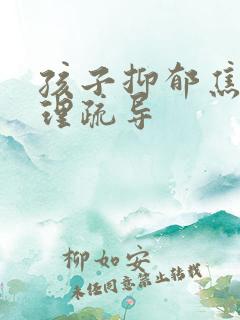 孩子抑郁焦
理疏导
柳如安
未经同意禁止转载